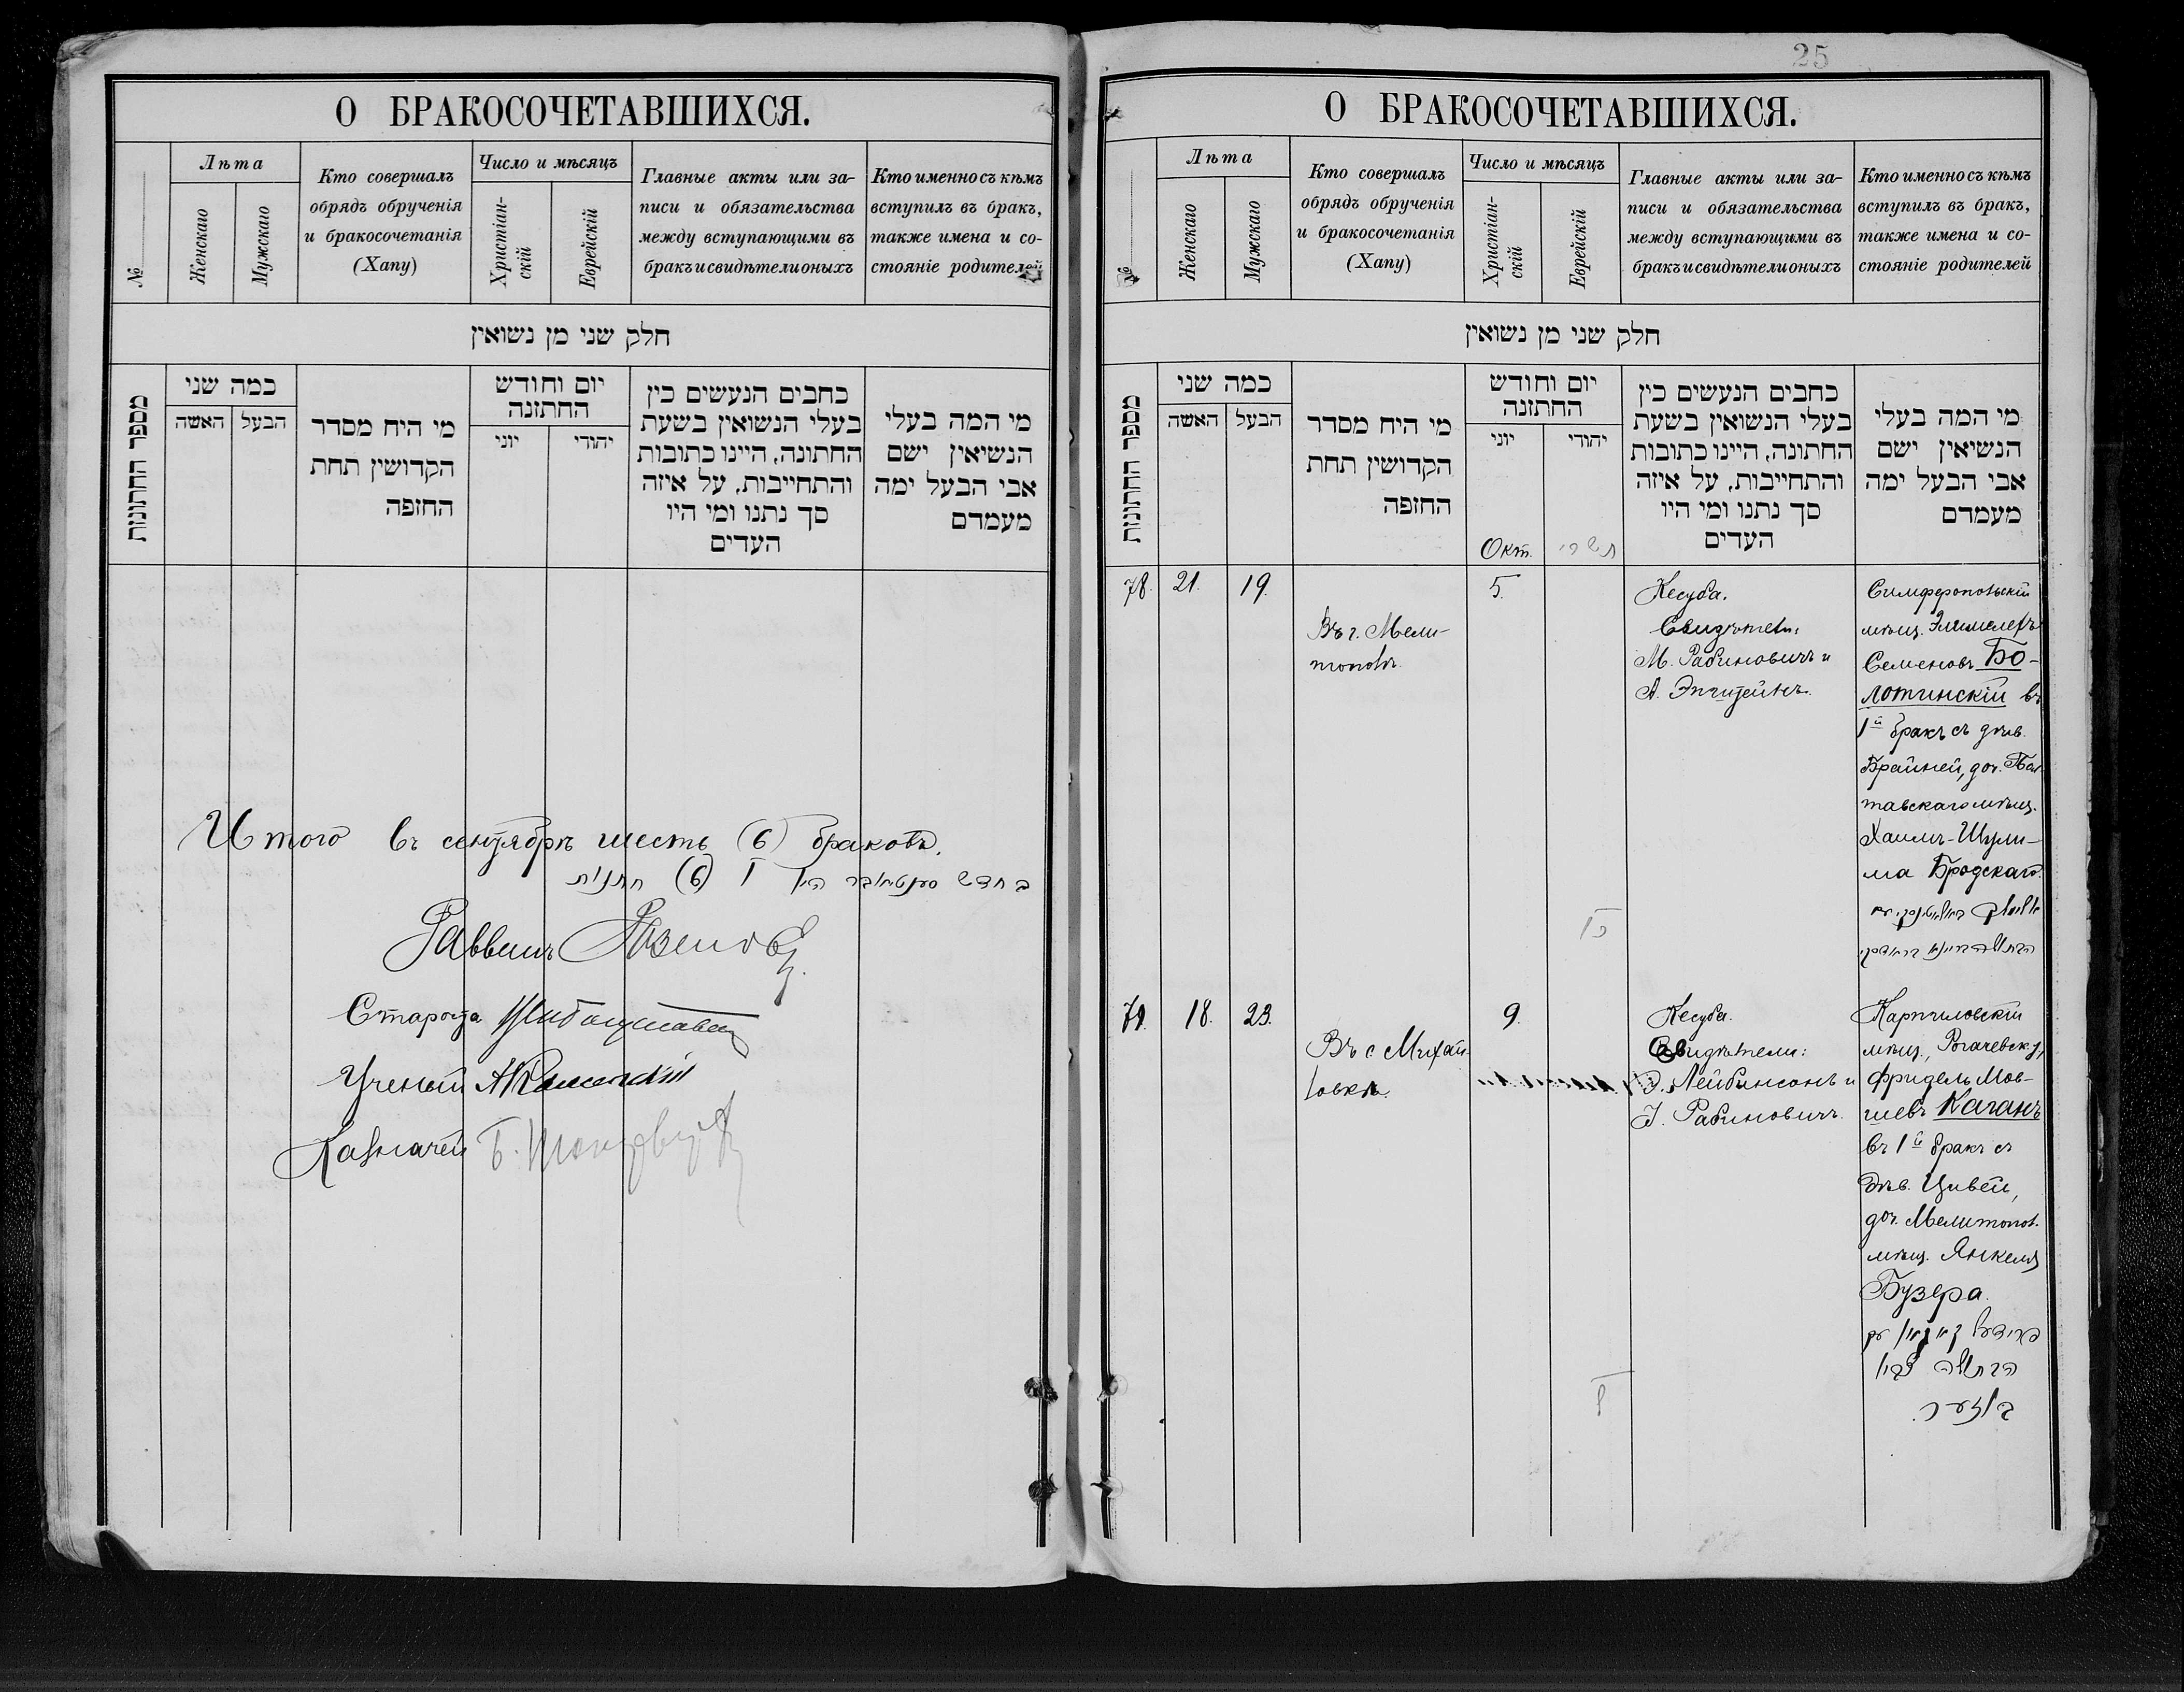 О БРАКОСОЧЕТАВШИХСЯ.
№
Лѣта
Женскаго
Мужскаго
Кто совершалъ
обрядъ обрученія
и бракосочетанія
(Хапу)
Число и мѣсяцъ
Христіан-
скій
Еврейскій
Главные акты или за-
писи и обязательства
между вступающими въ
бракъ и свидѣтели оныхъ
Кто именно съ кѣмъ
вступилъ въ бракъ,
также имена и со-
стояніе родителей
חלק שני מן נשואין
מספר החתונות
כמה שני
האשה
הבעל
מי היח מסדר
הקדושין תחת
החזפה
יום וחודש
החתזנה
יוני
יהודי
כחבים הנעשים כין
בעלי הנשואין בשעת
החתונה, היינו כתובות
והתחייבות, על איזה
סך נתנו ומי היו
העדים
מי המה בעלי
הנשיאין ישם
אבי הבעל ימה
מעמדם
Итого въ сентябрѣ шесть (6) браковъ.
בחדש סענטיאבר היו ו (6) חתנות
Раввинъ
Староста
Ученый АКаменскій
Казначей
25
О БРАКОСОЧЕТАВШИХСЯ.
№
Лѣта
Женскаго
Мужскаго
Кто совершалъ
обрядъ обрученія
и бракосочетанія
(Хапу)
Число и мѣсяцъ
Христіан-
скій
Еврейскій
Главные акты или за-
писи и обязательства
между вступающими въ
бракъ и свидѣтели оныхъ
Кто именно съ кѣмъ
вступилъ въ бракъ,
также имена и со-
стояніе родителей
חלק שני מן נשואין
מספר החתונות
כמה שני
האשה
הבעל
מי היח מסדר
הקדושין תחת
החזפה
יום וחודש
החתזנה
יוני
יהודי
Окт.
תשרי
כחבים הנעשים כין
בעלי הנשואין בשעת
החתונה, היינו כתובות
והתחייבות, על איזה
סך נתנו ומי היו
העדים
מי המה בעלי
הנשיאין ישם
אבי הבעל ימה
מעמדם
78. 21. 19.
Въ г. Мели-
тополѣ.
5.
Кесуба.
Свидѣтели:
М. Рабиновичъ и
А. Эпштейнъ.
Симферопольскій
мѣщ. Элимелехъ
Семеновъ Бо-
лотинскій въ
1й бракъ съ дѣв.
Брайней, доч. Пол-
тавскаго мѣщ.
Хаимъ-Шули-
ма Бродскаго.
79. 18. 23.
Въ с. Михай-
ловкѣ.
9.
Кесуба.
Свидѣтели:
Э. Лейбинсонъ и
І. Рабиновичъ.
Карпиловскій
мѣщ., Рогачевск. у,
Фридель Мов-
шевъ Каганъ
въ 1й бракъ съ
дѣв. Цивей,
доч. Мелитопол.
мѣщ. Янкеля
Бузера.